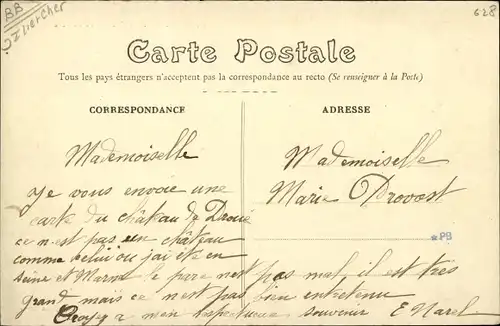 BB
628
Carte Postale
Tous les pays étrangers n'acceptent pas la correspondance au recto (Se renseigner à la Poste)
CORRESPONDANCE
ADRESSE
Mademoiselle
Je vous envoie une
carte du châtau de Droué
ce n'est pas un château
comme celui ou jai été en
Seine et Marne le parc n'est pas mal, il est très
grand mais ce n'est pas bien entretenu
Croyez a mon respectueux souvenir E Marel
Mademoiselle
Marie Provost
PB